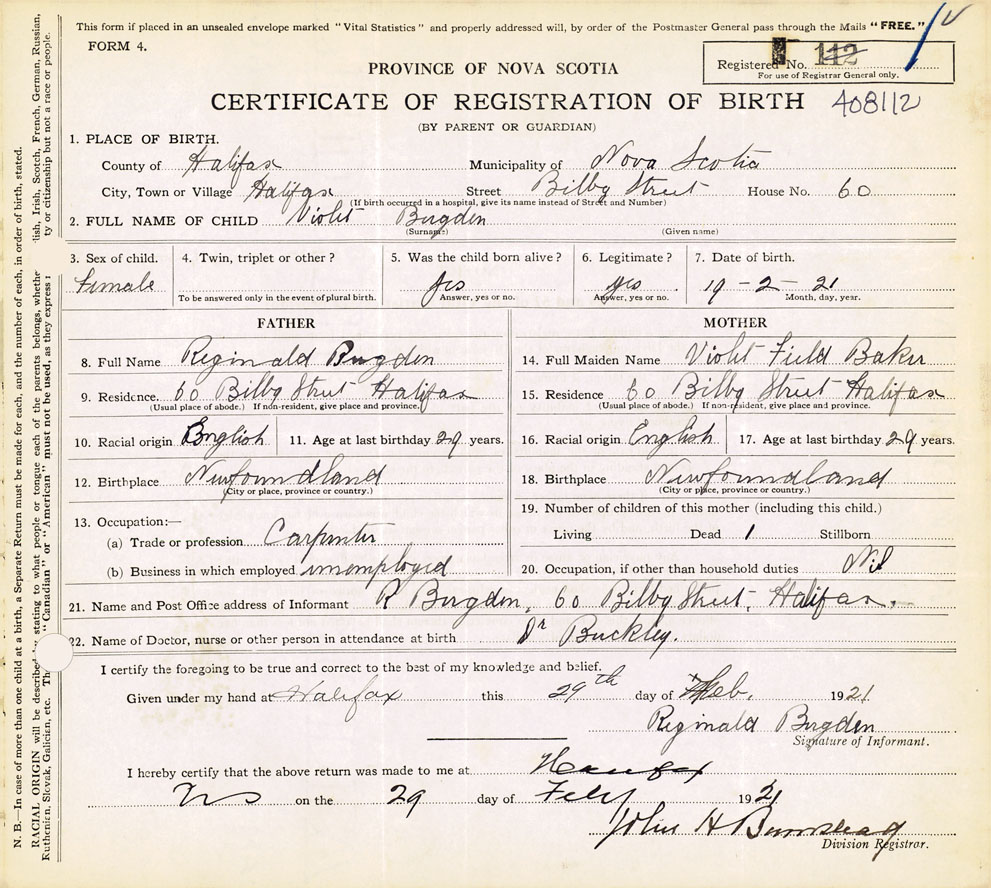 This form if placed in an unsealed envelope marked "Vital Statistics" and properly addressed will, by order of the Postmaster General pass through the Mails "FREE."
FORM 4.
Registered No. 112
For use of Registrar General only.
PROVINCE OF NOVA SCOTIA
CERTIFICATE OF REGISTRATION OF BIRTH 408112
(BY PARENT OR GUARDIAN)
1. PLACE OF BIRTH.
County of Halifax Municipality of Nova Scotia
City, Town or Village Halifax Street Bilby Street House No. 60
(If birth occurred in a hospital, give its name instead of Street and Number)
2. FULL NAME OF CHILD Violet Bugden
(Surname) (Given name)
3. Sex of child. 4. Twin, triplet or other? 5. Was the child born alive? 6. Legitimate? 7. Date of birth.
Female yes yes 19-2-21
To be answered only in the event of plural birth. Answer, yes or no. Answer, yes or no. Month, day, year.
FATHER MOTHER
8. Full Name Reginald Bugden 14. Full Maiden Name Violet Field Baker
9. Residence. 60 Bilby Street Halifax 15. Residence 60 Bilby Street Halifax
(Usual place of abode.) If non-resident, give place and province. (Usual place of abode.) If non-resident, give place and province.
10. Racial origin English 11. Age at last birthday 29 years. 16. Racial origin English 17. Age at last birthday 29 years.
12. Birthplace Newfoundland 18. Birthplace Newfoundland
(City or place, province or country.) (City or place, province or country.)
13. Occupation:— 19. Number of children of this mother (including this child.)
(a) Trade or profession Carpenter Living Dead 1 Stillborn
(b) Business in which employed unemployed 20. Occupation, if other than household duties Nil
21. Name and Post Office address of Informant R Bugden, 60 Bilby Street, Halifax.
22. Name of Doctor, nurse or other person in attendance at birth Dr Buckley.
I certify the foregoing to be true and correct to the best of my knowledge and belief.
Given under my hand at Halifax this 29th day of Feb. 1921
Reginald Bugden
Signature of Informant.
I hereby certify that the above return was made to me at Halifax
NS on the 29 day of Feby 1921
John H
Division Registrar.
N. B.—In case of more than one child at a birth, a Separate Return must be made for each, and the number of each, in order of birth, stated.
RACIAL ORIGIN will be described stating to what people or tongue each of the parents belongs, whethe lish, Irish, Scotch, French, German, Russian,
Ruthenian, Slovak, Galician, etc. "Canadian" or "American" must not be used, as they express ty or citizenship but not a race or people.